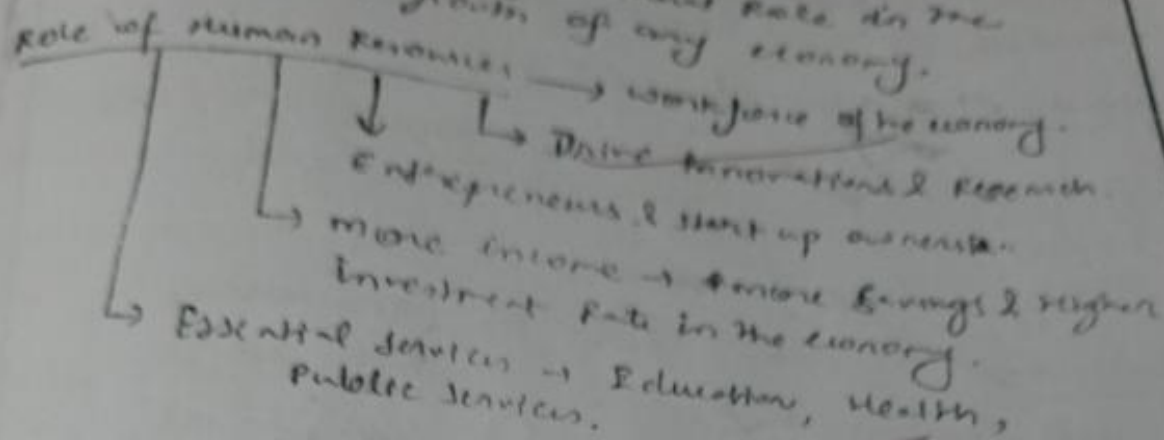 Role in the
growth of any economy.
Role of Human Resources → workforce of the economy.
Drive innovations & Research.
Entrepreneurs & start up owners.
more income → more savings & higher
investment rate in the economy.
Essential services → Education, Health,
Public services.